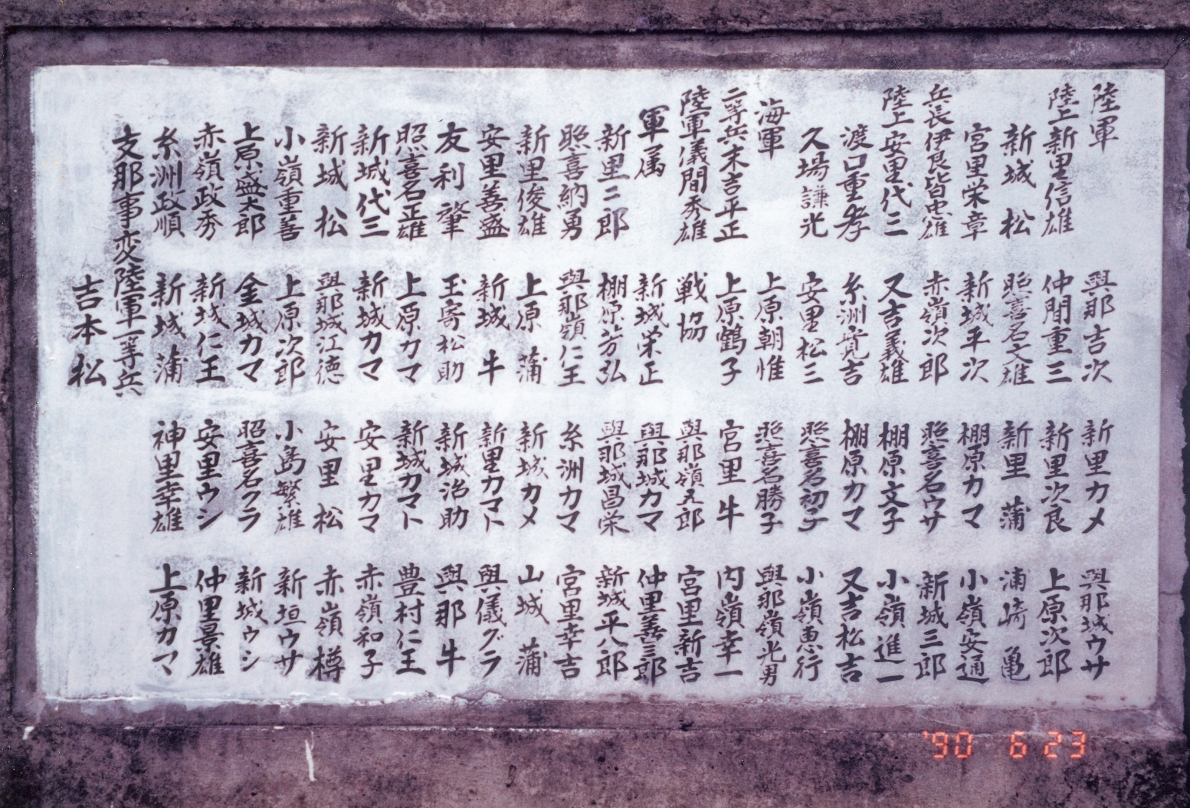 陸軍
陸上新里信雄
新城 松
宮里栄章
兵長伊良皆忠雄
陸上安里代三
渡口重孝
久場謙光
海軍
二等兵末吉平正
陸軍儀間秀雄
軍属
新里二郎
照喜納勇
新里俊雄
安里善盛
友利 肇
照喜名正雄
新城代三
新城 松
小嶺重善
上原盛太郎
赤嶺政秀
糸洲政順
與那吉次
仲間重三
照喜名文雄
新城平次
赤嶺次郎
又吉義雄
糸洲寛吉
安里松三
上原朝惟
上原鶴子
戦協
新城栄正
棚原芳弘
與那嶺仁王
上原 蒲
新城 牛
玉寄松助
上原カマ
新城カマ
與那城江徳
上原次郎
金城カマ
新城仁王
新城 蒲
支那事変陸軍一等兵
吉本 松
新里カメ
新里次良
新里 蒲
棚原カマ
照喜名ウサ
棚原文子
棚原カマ
照喜名初子
照喜名勝子
宮里 牛
與那嶺五郎
與那城カマ
與那城昌栄
糸洲カマ
新城カメ
新里カマト
新城治助
新城カマト
安里カマ
安里 松
小島繁雄
照喜名クラ
安里ウシ
神里幸雄
與那城ウサ
上原次郎
浦崎 亀
小嶺安通
新城三郎
小嶺進一
又吉松吉
小嶺恵行
與那嶺光男
内嶺幸一
宮里新吉
仲里善三郎
新城平八郎
宮里幸吉
山城 蒲
與儀グラ
與那 牛
豊村仁王
赤嶺和子
赤嶺 樽
新垣ウサ
新城ウシ
仲里景雄
上原カマ
'90 6 23